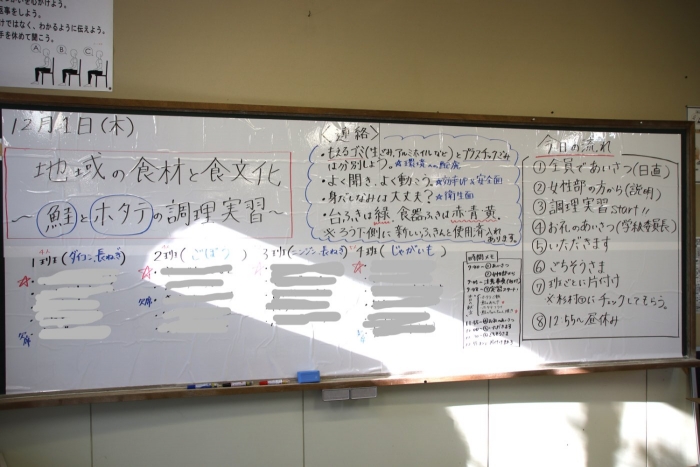 事をしよう。
けではなく、わかるように伝えよう。
手を休めて聞こう。
A B C
12月1日(木)
地域の食材と食文化
～鮭とホタテの調理実習～
1班(ダイコン、長ねぎ)
2班(ごぼう)
3班(ニンジン、長ねぎ)
4班(じゃがいも)
欠席
<連絡>
・もえるゴミ(生ごみ、アルミホイルなど)とプラスチックごみ
は分別しよう。
・よく聞き、よく動こう。☆効率UP&安全面
・身だしなみは大丈夫?☆衛生面
・台ふきは緑、食器ふきは赤青黄。
※ろう下側に新しいふきんと使用済入れ
あります。
時間メモ
今日の流れ
①全員であいさつ(日直)
②女性部の方から(説明)
③調理実習start!!
④お礼のあいさつ(学級委員長)
⑤いただきます
⑥ごちそうさま
⑦班ごとに片付け
チェックしてもらう。
⑧12:55～昼休み